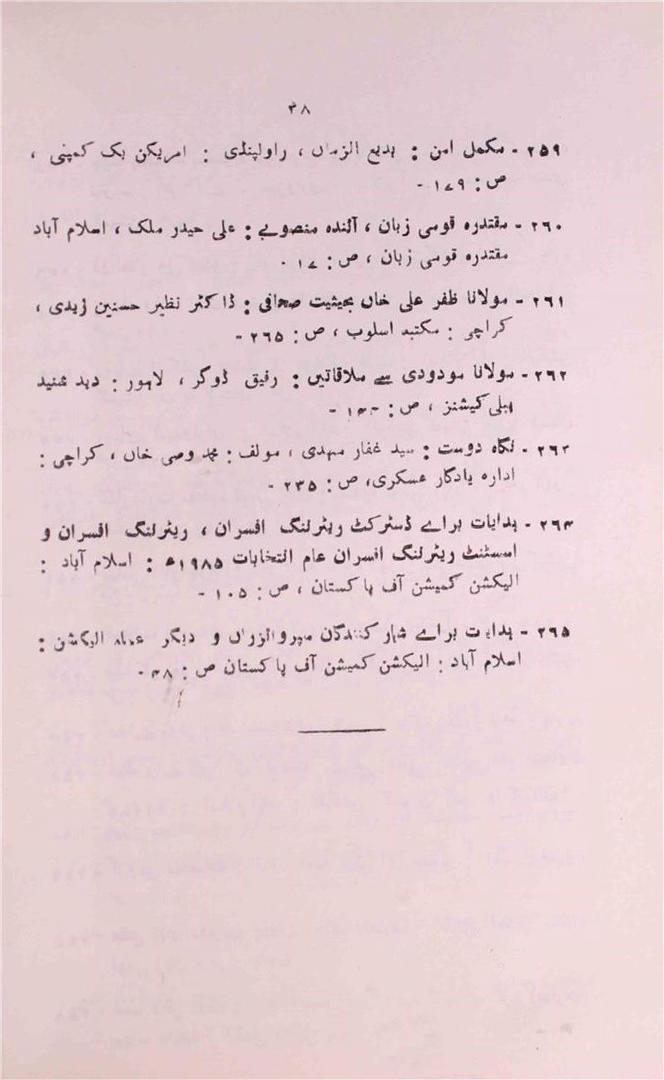 ۳۸
۲۵۹ - مکمل امن : بدیع الزماں ، راولپنڈی : امریکن بک کمپنی ،
ص : ۱۷۹ -
۲۶۰ - مقتدرہ قومی زبان ، آئندہ منصوبے : علی حیدر ملک ، اسلام آباد
مقتدرہ قومی زبان ، ص : ۱۷ -
۲۶۱ - مولانا ظفر علی خاں بحیثیت صحافی : ڈاکٹر نظیر حسنین زیدی ،
کراچی : مکتبہ اسلوب ، ص : ۲۶۵ -
۲۶۲ - مولانا مودودی سے ملاقاتیں : رفیق ڈوگر ، لاہور : دید شنید
پبلی کیشنز ، ص : -
۲۶۳ - نگاہ دوست : سید غفار مہدی ، مولف : محمد وصی خاں ، کراچی :
ادارہ یادگار عسکری، ص : ۲۳۵ -
۲۶۴ - ہدایات براے ڈسٹرکٹ ریٹرننگ افسران ، ریٹرننگ افسران و
اسسٹنٹ ریٹرننگ افسران عام انتخابات ۱۹۸۵ء : اسلام آباد :
الیکشن کمیشن آف پاکستان ، ص : ۱۰۵ -
۲۶۵ - ہدایت براے شمار کنندگان سپروائزران و دیگر عملہ الیکشن :
اسلام آباد : الیکشن کمیشن آف پاکستان ص : ۴۸ -